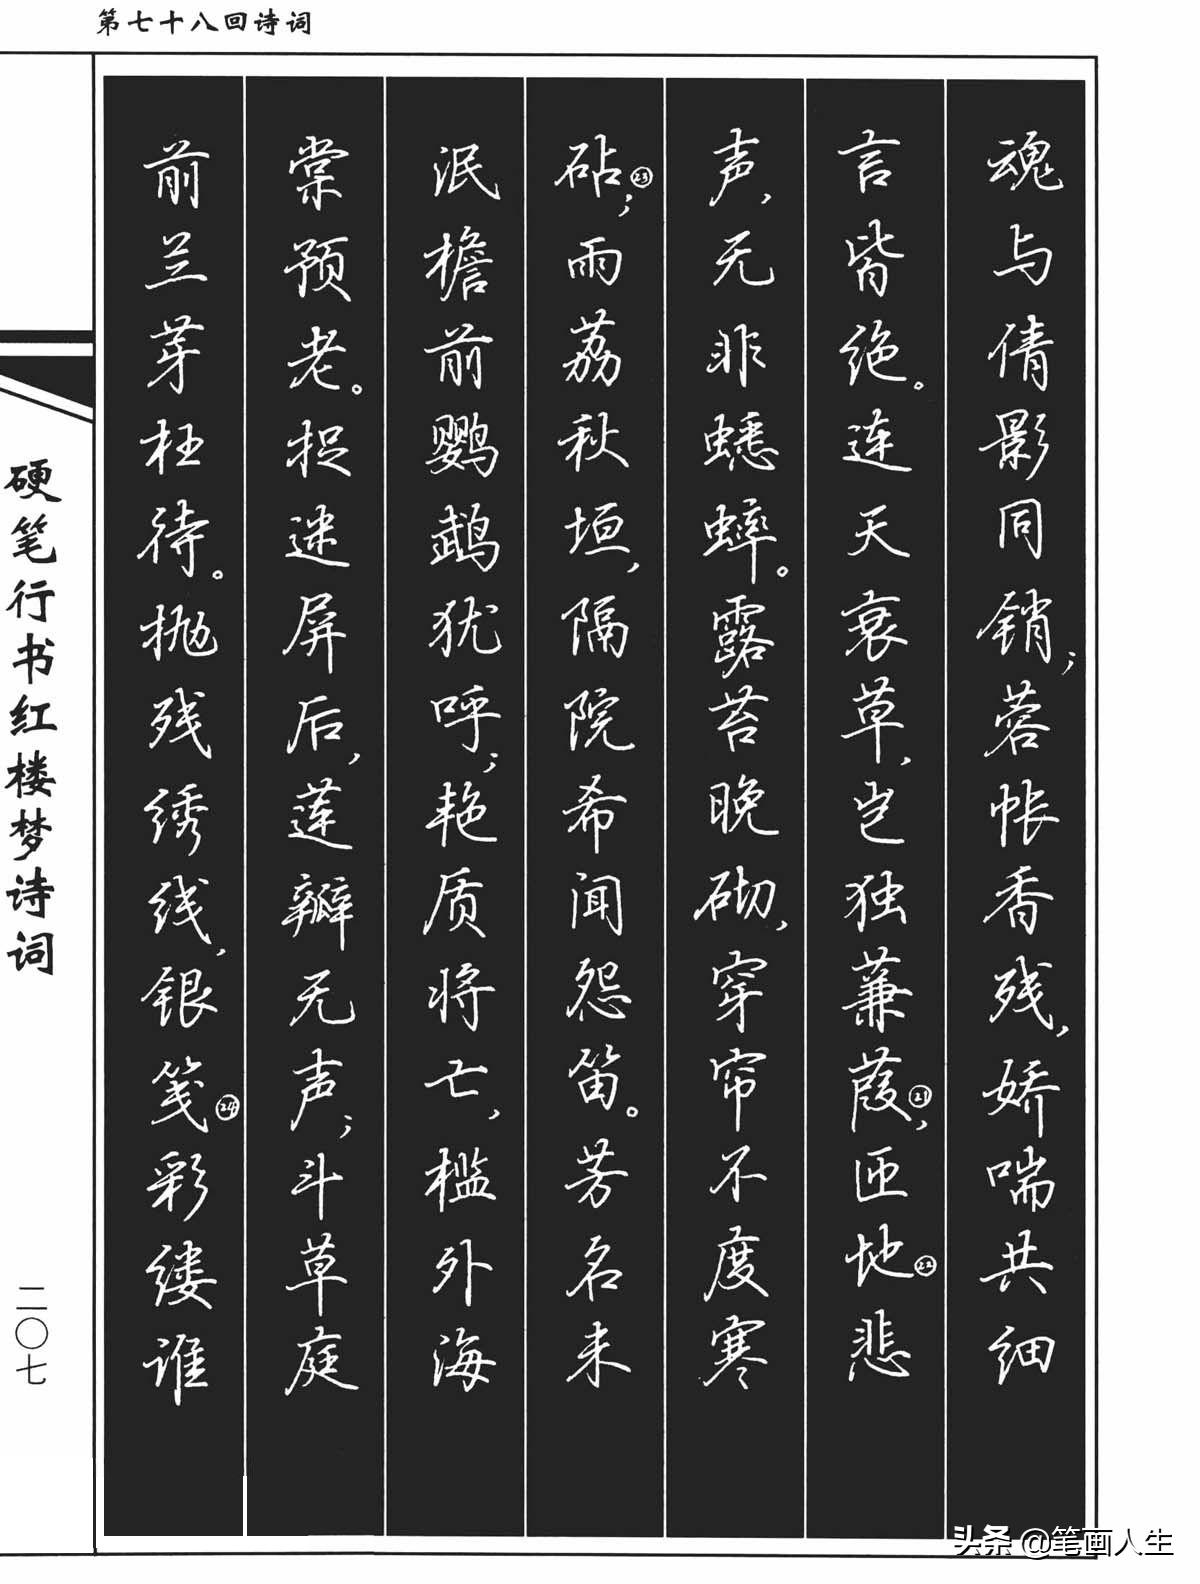 第七十八回诗词
魂与倩影同销；蓉帐香残，娇喘共细
言皆绝。连天衰草，岂独蒹葭㉑，匝地㉒悲
声，无非蟋蟀。露苔晚砌，穿帘不度寒
砧㉓；雨荔秋垣，隔院希闻怨笛。芳名未
泯檐前鹦鹉犹呼；艳质将亡，槛外海
棠预老。捉迷屏后，莲瓣无声；斗草庭
前兰芽枉待。抛残绣线，银笺㉔彩缕谁
硬笔行书红楼梦诗词
二〇七
头条 @笔画人生